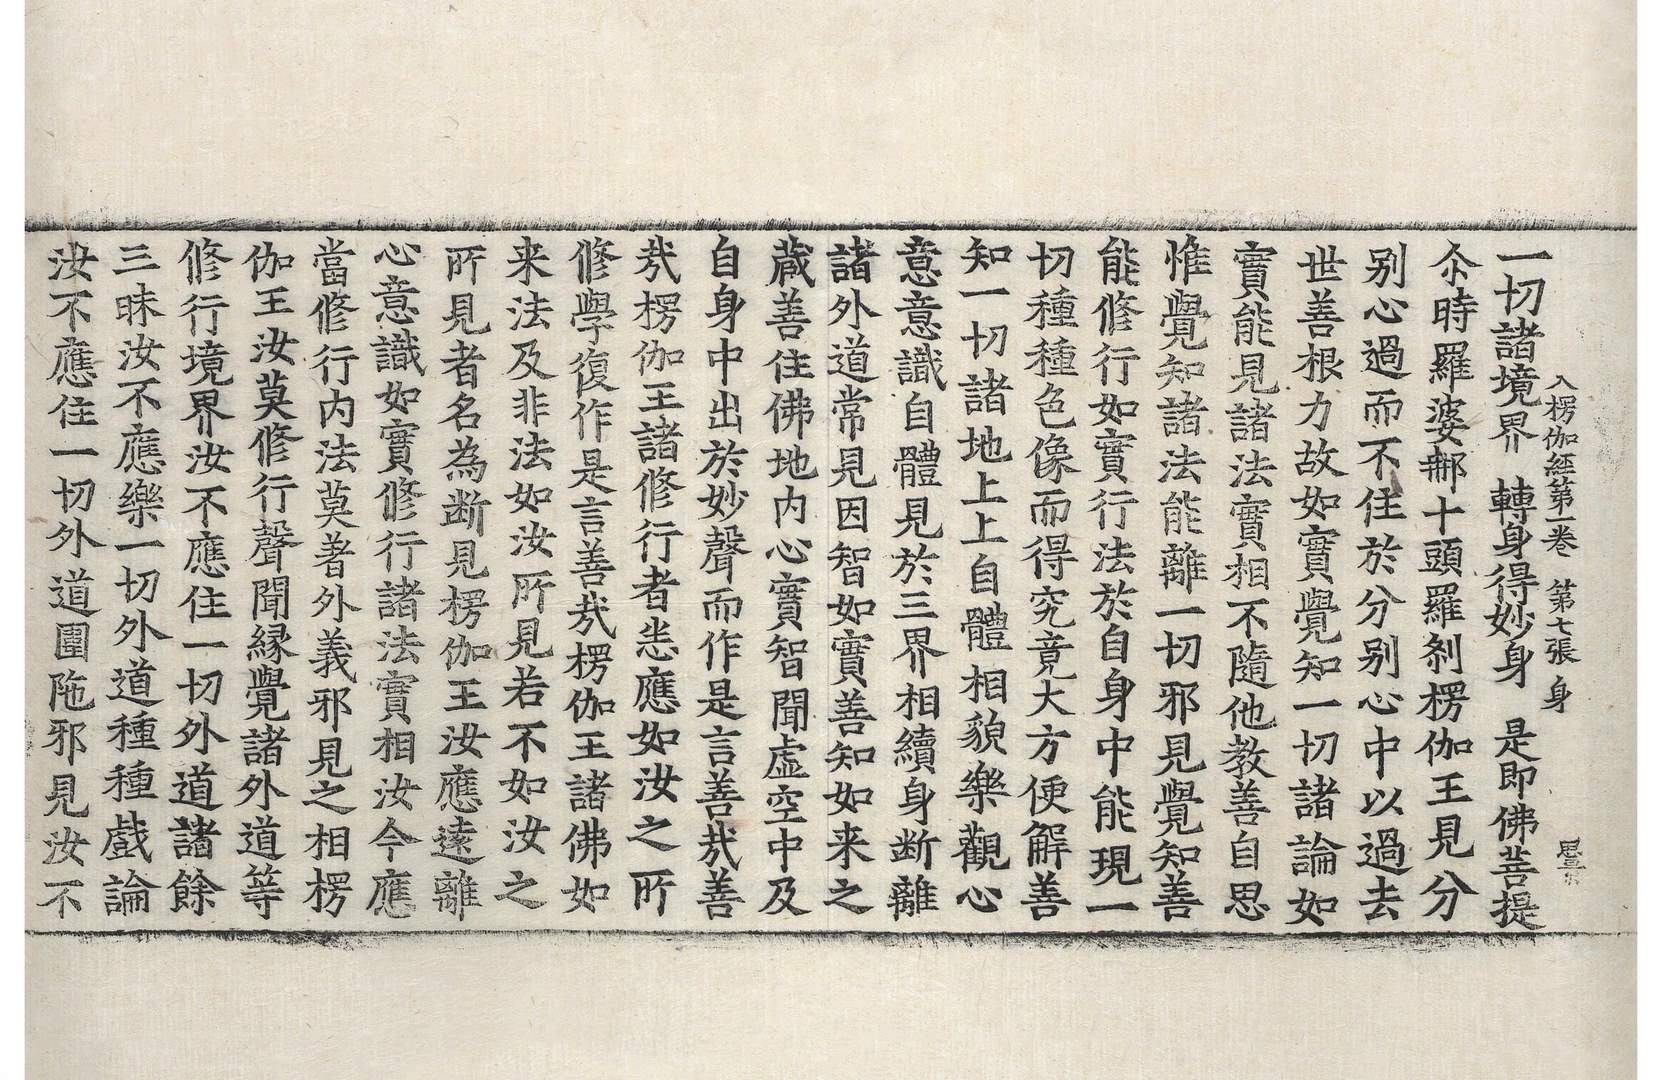 入楞伽経第一卷　第七張　身
一切諸境界　轉身得妙身　是即佛菩提
尒時羅婆那十頭羅刹楞伽王見分
别心過而不住於分别心中以過去
世善根力故如實覺知一切諸論如
實能見諸法實相不隨他教善自思
惟覺知諸法能離一切邪見覺知善
能修行如實行法於自身中能現一
切種種色像而得究竟大方便解善
知一切諸地上上自體相貌樂觀心
意意識自體見於三界相續身断離
諸外道常見因智如實善知如来之
蔵善住佛地内心實智聞虚空中及
自身中出於妙聲而作是言善㢤善
㢤楞伽王諸修行者悉應如汝之所
修學復作是言善㢤楞伽王諸佛如
来法及非法如汝所見若不如汝之
所見者名為断見楞伽王汝應遠離
心意識如實修行諸法實相汝今應
當修行内法莫著外義邪見之相楞
伽王汝莫修行聲聞縁覺諸外道等
修行境界汝不應住一切外道諸餘
三昧汝不應樂一切外道種種戲論
汝不應住一切外道圍陁邪見汝不